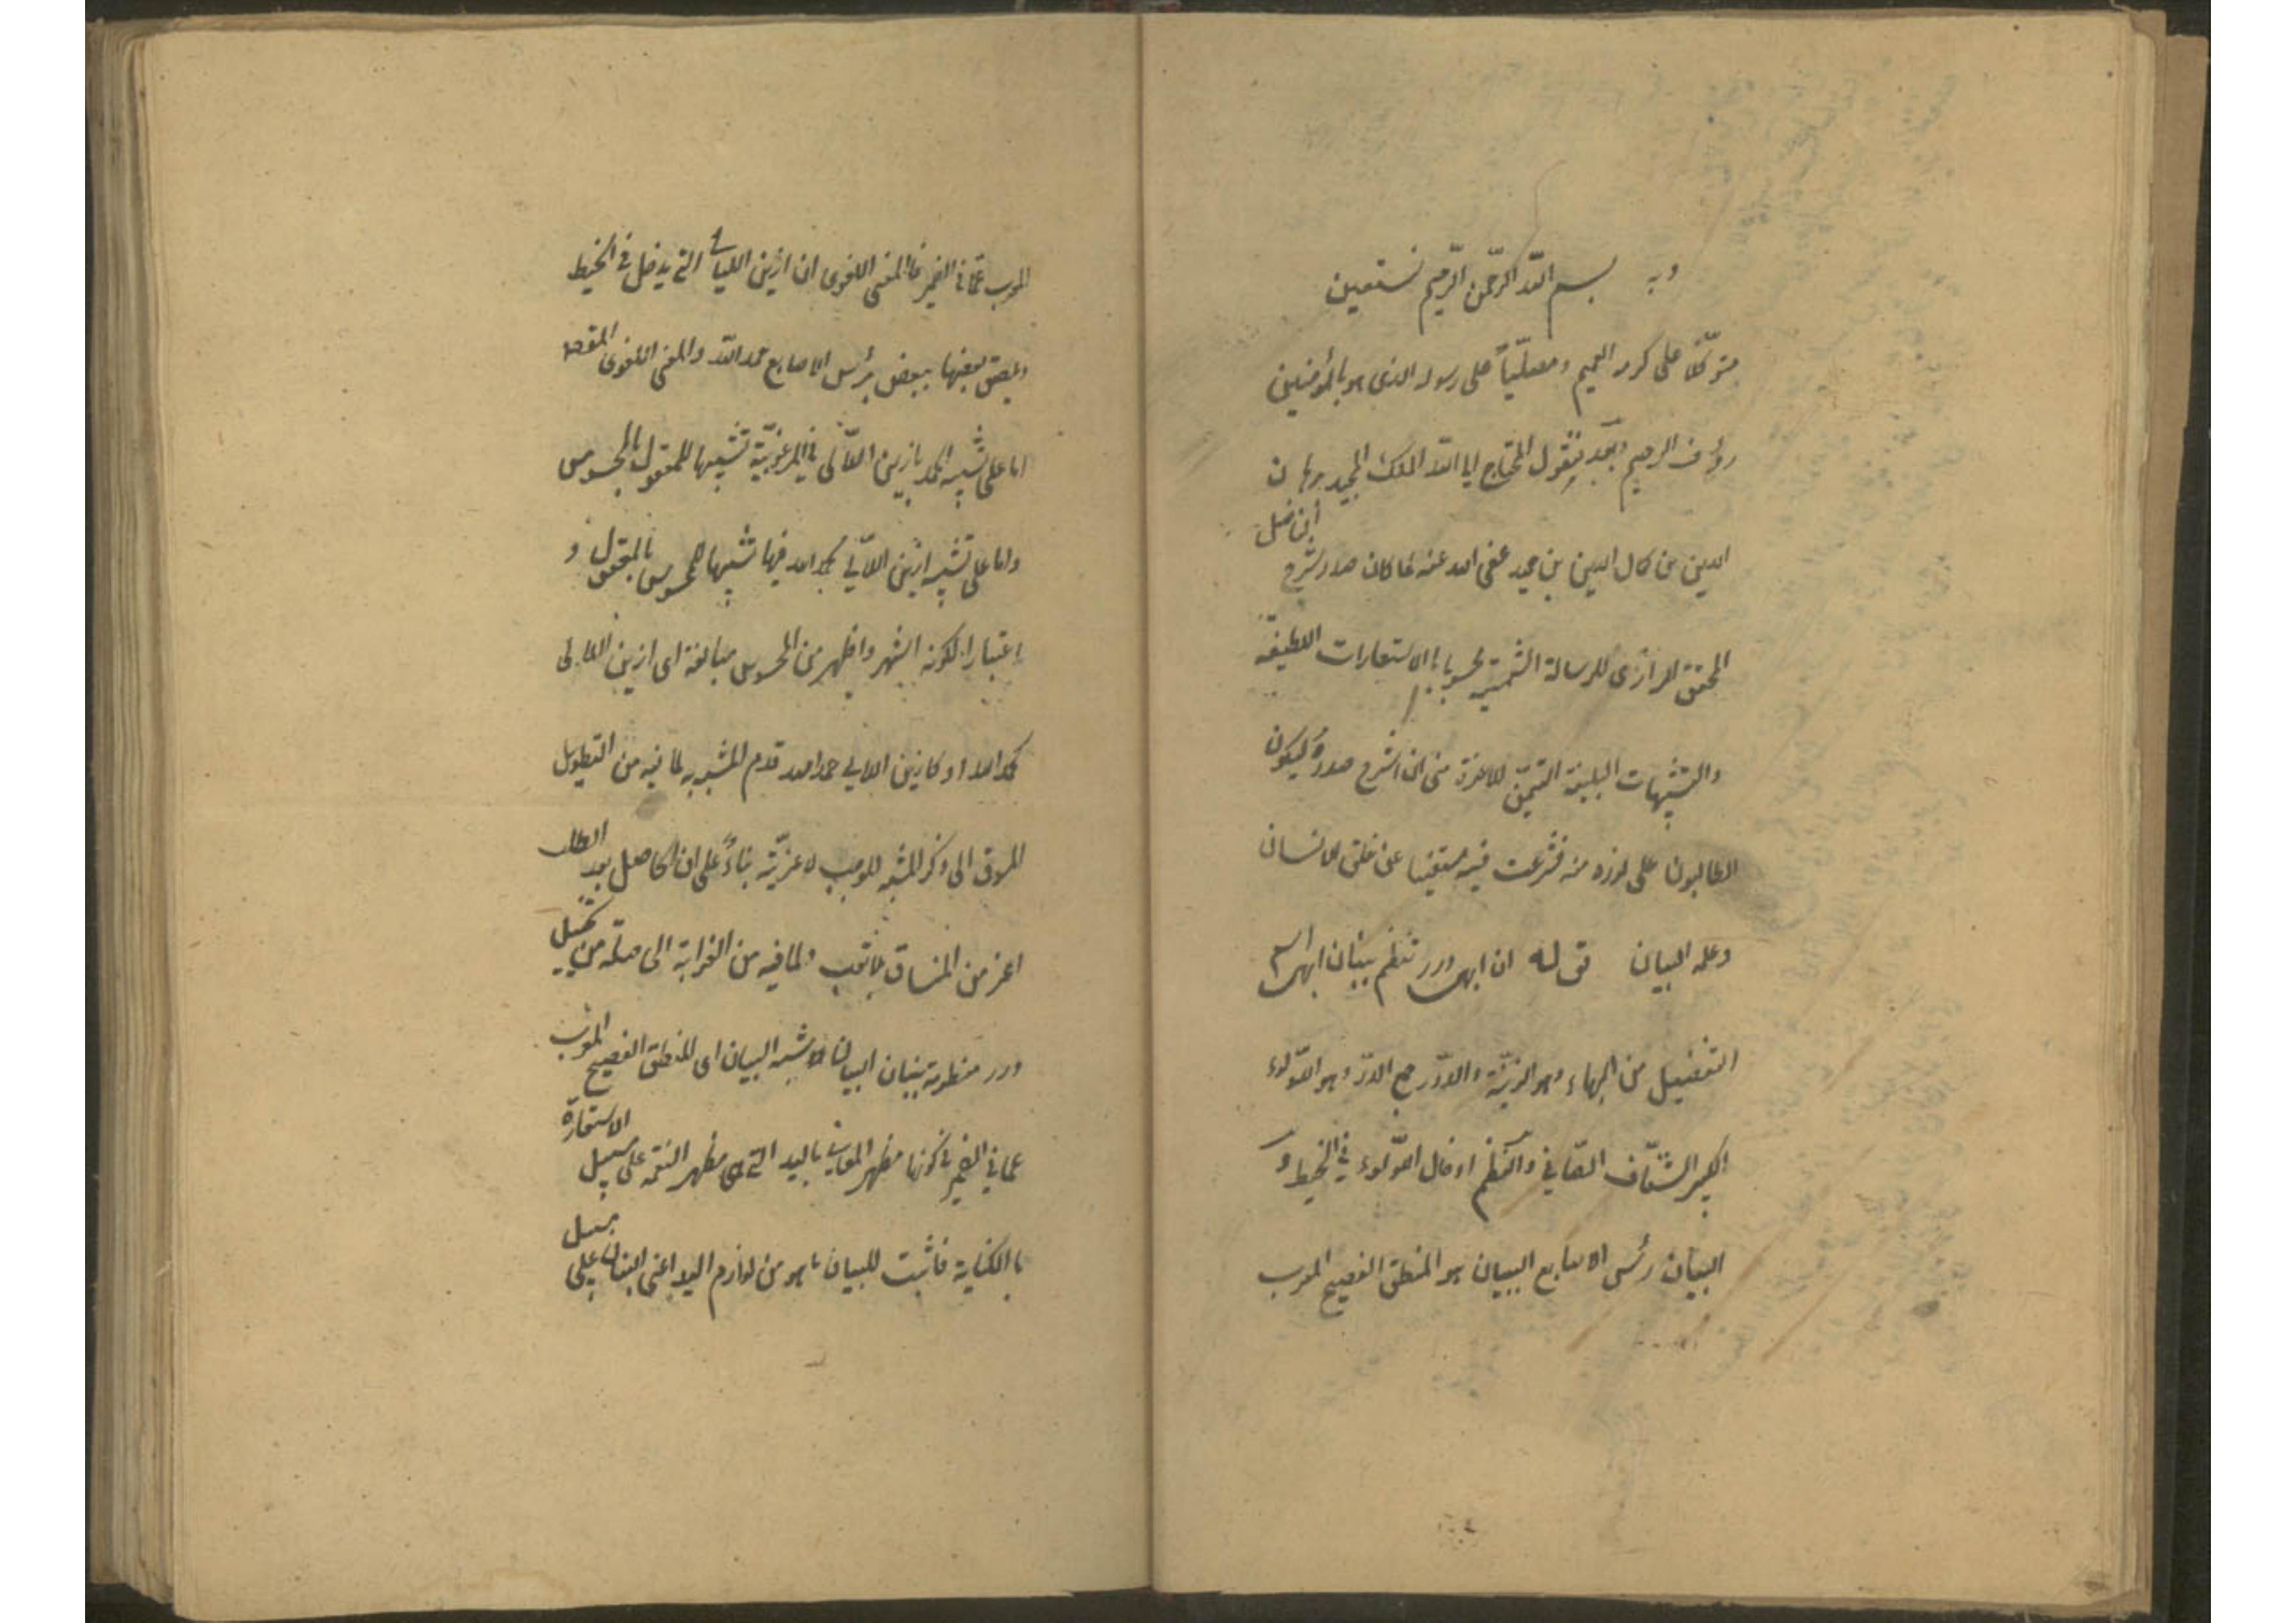 وبه بسم الله الرحمن الرحيم نستعين
متوكلا على كرمه العميم ومصليّاً على رسوله الذى هو بالمؤمنين
رؤف الرحيم وبعد فيقول المحتاج الى الله الملك المجيد برهان
الدين بن كمال الدين بن حميد عفى الله عنه لما كان صدر شرح الفاضل
المحقق الرازى للرسالة الشمسية محسوبا بالاستعارات اللطيفة
والتشبيهات البليغة التمس الاعزة منى ان اشرح صدره ليكون
الطالبون على لوزه منه فشرعت فيه مستعينا عن خلق الانسان
وعلمه البيان قوله ان ابهى درر تنظم ببنان ابهى اسم
التفضيل من البهاء وهو الزينة والدرر جمع الدر وهو اللؤلؤ
الكبير الشفاف الصافى والنظم ادخال اللؤلؤ فى الخيط و
البنان رئس الاصابع البيان هو المنطق الفصيح المعرب
المعرب عمّا فى الضمير فالمعنى اللغوى ان ازين اللئالى التى يدخل فى الخيط
ويلصق بعضها ببعض برئس الاصابع حمد الله والمعنى اللغوى المقصود
اما على تشبيه الحمد بازين اللآلى فى المرغوبيّة تشبيها للمعقول بالمحسوس
واما على تشبيه ازين اللآلى بحمد الله فيها تشبيها للمحسوس بالمعقول و
اعتبارا لكونه اشهر واظهر من المحسوس مبالغة اى ازين اللآلى
كحمد الله او كازين اللآلى حمد الله قدم المشبه به لما فيه من التطويل
المسوق الى ذكر المشبه الموجب لاعزيّة بناءً على ان الحاصل بعد الطلب
اعز من المنساق بلا تعب ولما فيه من الغرابة الى صلة من تخييل
درر منظومة ببنان البيان شبه البيان اى المنطق الفصيح المعرب
عما فى الضمير فى كونها مظهر المعانى باليد التى هى مظهر النعمة على سبيل الاستعارة
بالكناية فاثبت للبيان ما هو من لوازم اليد اعنى البنان على سبيل